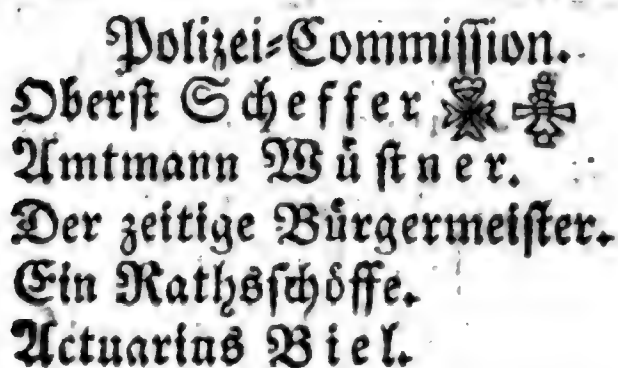 Polizei-Commission.
Oberst Scheffer
Amtmann Wüstner.
Der zeitige Bürgermeister.
Ein Rathsschöffe.
Actuarius Biel.